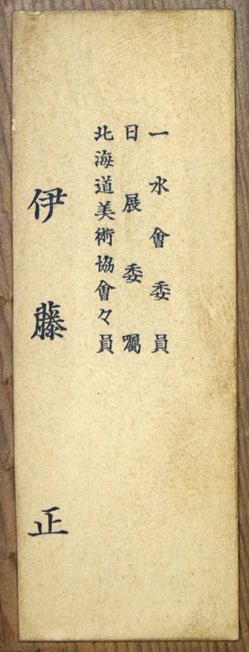 一水會委員
日展委嘱
北海道美術協會々員
伊藤正